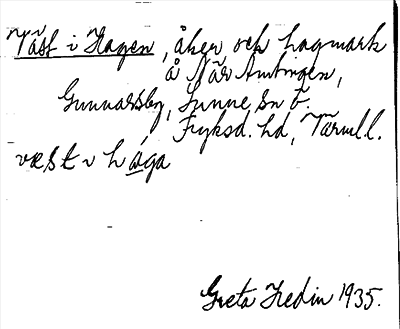 Väst i Hagen, åker och hagmark
å När Amtingen,
Gunnarsby, Sunne sn
Fryksd. hd, Värml.l.
væst i haga
Greta Hedin 1935.